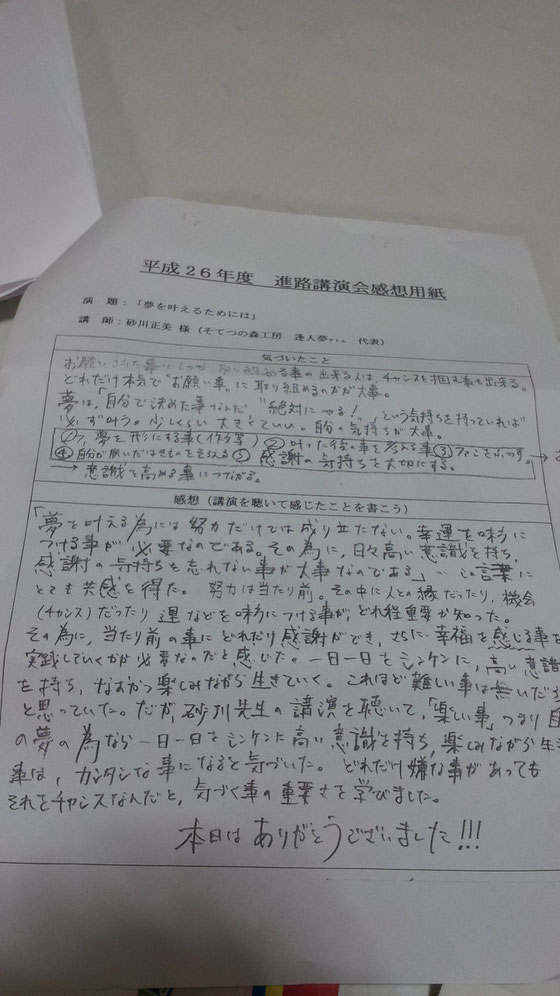 平成26年度 進路講演会感想用紙
演 題：「夢を叶えるためには」
講 師：砂川正美 様（そてつの森工房 逢人夢 代表）
気づいたこと
お願いされた事に 取り組める事の出来る人は、チャンスを掴む事も出来る。
どれだけ本気で"お願い事"に取り組めるのかが大事。
夢は、「自分で決めた事なんだ、"絶対にやる！"という気持ちを持っていれば"
必ず叶う。少しくらい大きくていい。自分の気持ちが大事。
①夢を形にする事(作文等) ②叶った後の事を考える事 ③
④自分が脱いだはきものをそろえる ⑤感謝の気持ちを大切にする。
→意識を高める事につながる。
感想（講演を聴いて感じたことを書こう）
「夢を叶える為には努力だけでは成り立たない。幸運を味方に
つける事が必要なのである。その為に、日々高い意識を持ち、
感謝の気持ちを忘れない事が大事なのである」… この言葉に
とても共感を得た。努力は当たり前。その中に人との縁だったり、機会
(チャンス)だったり 運などを味方につける事が、どれ程重要か知った。
その為に、当たり前の事にどれだけ感謝ができ、さらに幸福を感じる事を
実践していくかが必要なのだと感じた。一日一日をシンケンに、高い意識
を持ち、なおかつ楽しみながら生きていく。これほど難しい事は無いだろ
と思っていた。だが、砂川先生の講演を聴いて、「楽しい事」つまり自
の夢の為なら一日一日をシンケンに高い意識を持ち、楽しみながら生
事は、カンタンな事になると気づいた。どれだけ嫌な事があっても
それをチャンスなんだと、気づく事の重要さを学びました。
本日はありがとうございました!!!